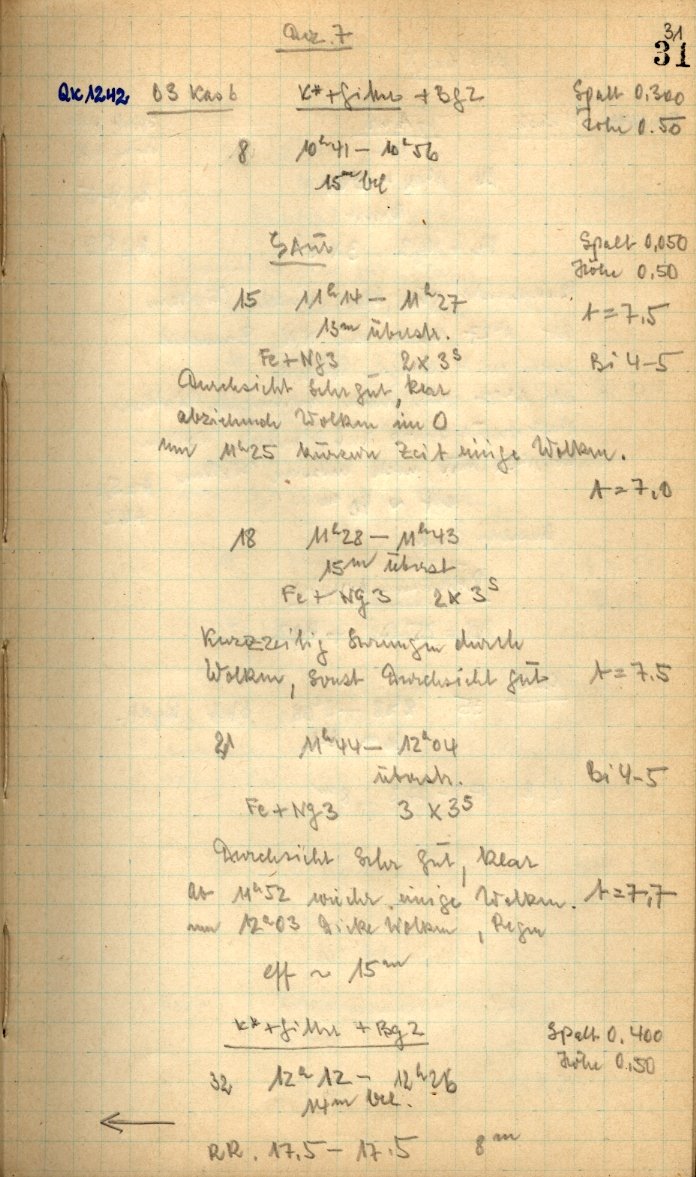 Dez. 7
31
31
QK1242 B3 Kas 6 K*+Gitter + Bg2 Spalt 0,300
Höhe 0.50
8 10h41 – 10h56
15m bel
ζ Aur Spalt 0,050
Höhe 0,50
15 11h14 – 11h27 t=7,5
13m überstr.
Fe+Ng3 2x3s Bi 4-5
Durchsicht sehr gut, klar
abziehende Wolken im O
um 11h25 kürzere Zeit einige Wolken.
t=7,0
18 11h28 – 11h43
15m überst
Fe+Ng3 2x3s
Kurzzeitig Störungen durch
Wolken, sonst Durchsicht gut t=7.5
21 11h44 – 12h04
überstr. Bi 4-5
Fe+Ng3 3x3s
Durchsicht sehr gut, klar
ab 11h52 wieder einige Wolken. t=7,7
um 12h03 Dicke Wolken, Regen
eff ~ 15m
K*+Gitter + Bg2 Spalt 0,400
Höhe 0,50
32 12h12 – 12h26
14m bel.
←
RR. 17.5 – 17.5 8m